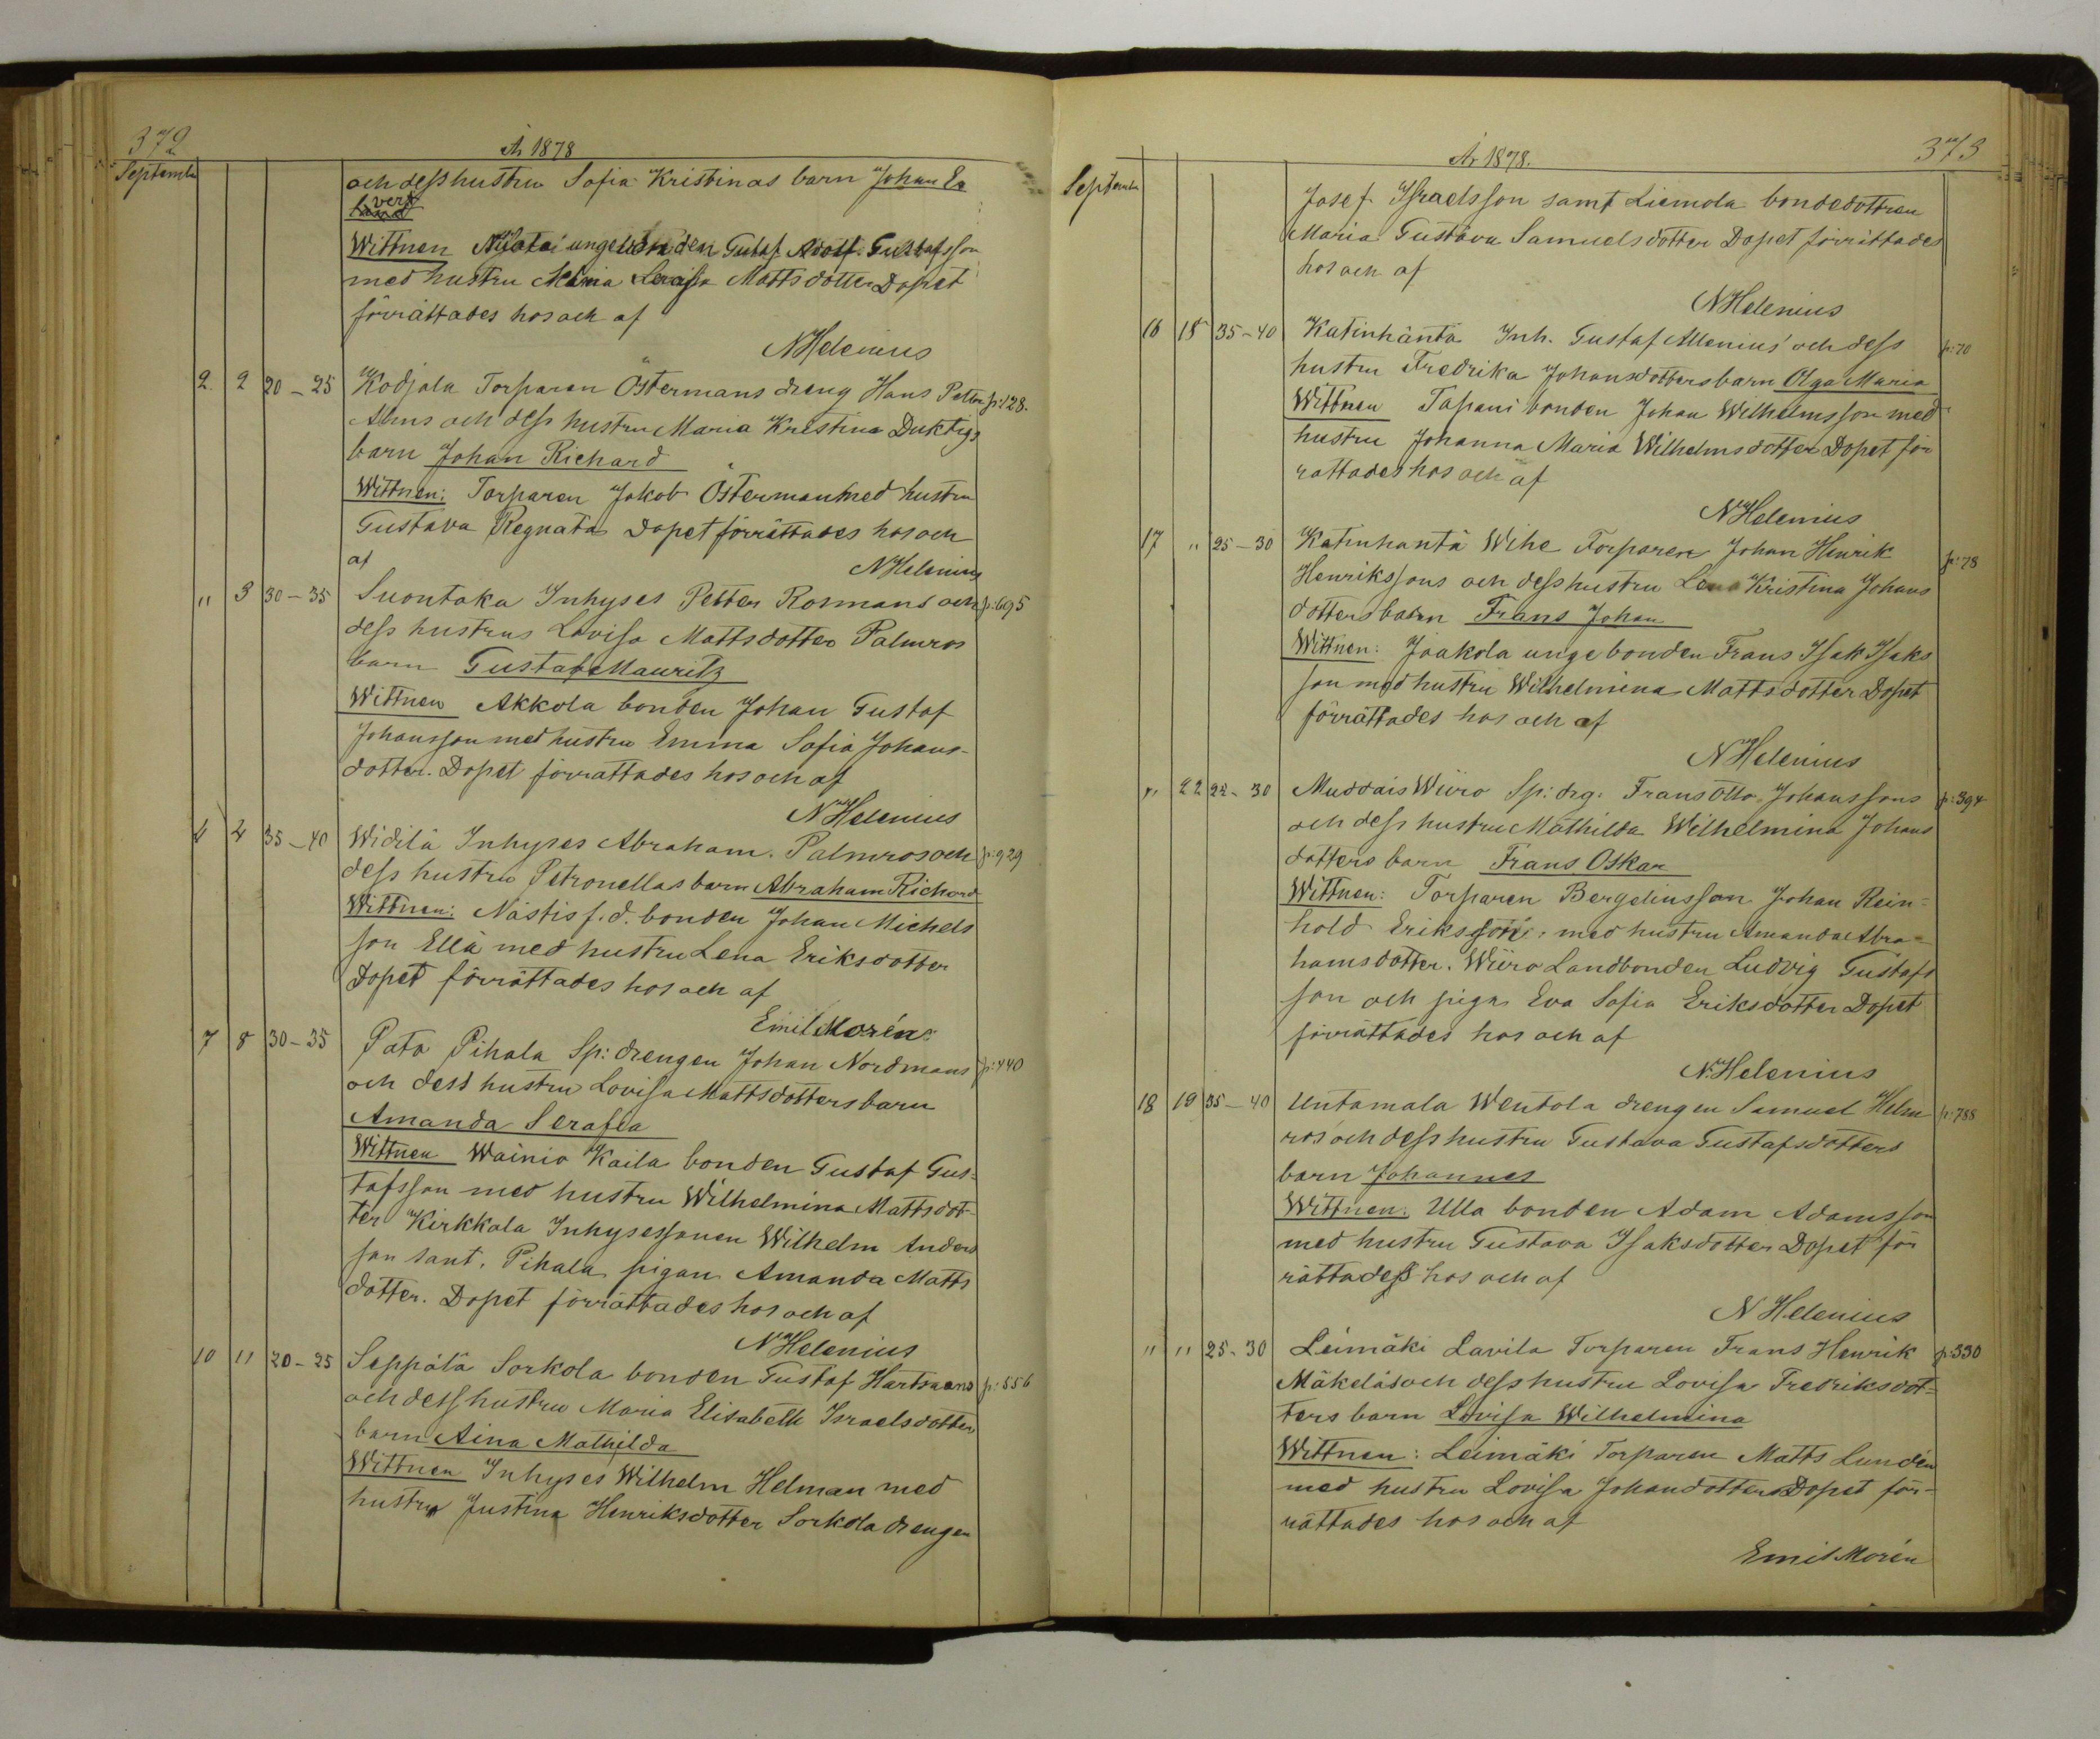 372
År 1878
September
och dess hustru Sofia Kristinas barn Johan Ed
vert
Wittnen unge bonden Gustaf Adolf Gustafsson
med hustru Maria Lovisa Mattsdotter Dopet
förrättades hos och af
NHelenius
2 2 20-25 Kodjala Torparen Östermans dreng Hans Petter p:128.
Alms och dess hustru Maria Kristina Duktigs
barn Johan Richard
Wittnen: Torparen Jakob Österman med hustru
Gustava Regnata Dopet förrättades hos och
af
NHelenius
" 3 30-35 Suontaka Inhyses Petter Rosmans och p:695
dess hustrus Lovisa Mattsdotter Palmros
barn Gustaf Mauritz
Wittnen Akkola bonden Johan Gustaf
Johansson med hustru Emma Sofia Johans-
dotter. Dopet förrättades hos och af
NHelenius
4 4 35-40 Widilä Inhyses Abraham Palmros och p:929
dess hustru Petronellas barn Abraham Richard
Wittnen: Nästis f.d. bonden Johan Michels
son Ellä med hustru Lena Eriksdotter
Dopet förrättades hos och af
Emil Morén
7 8 30-35 Pato Pihala Sp: drengen Johan Nordmans p:440
och dess hustru Lovisa Mattsdotters barn
Amanda Serafia
Wittnen Wainio Kaila bonden Gustaf Gus-
tafsson med hustru Wilhelmina Mattsdot-
ter Kirkkala Inhysessonen Wilhelm Anders
son samt. Pihala pigan Amanda Matts
dotter. Dopet förrättades hos och af
NHelenius
10 11 20-25 Seppälä Sorkola bonden Gustaf Hartmans p:556
och dess hustru Maria Elisabeth Israelsdotter
barn Aina Mathilda
Wittnen Inhyses Wilhelm Helman med
hustru Justina Henriksdotter Sorkola drengen
373
År 1878.
September
Josef Israelsson samt Liemola bondedottren
Maria Gustava Samuelsdotter Dopet förrättades
hos och af
NHelenius
16 18 35-40 Katinhäntä Inh. Gustaf Allenius' och dess p:70
hustru Fredrika Johansdotters barn Olga Maria
Wittnen Tapani bonden Johan Wilhelmsson med
hustru Johanna Maria Wilhelmsdotter Dopet för
rättades hos och af
NHelenius
17 " 25-30 Katinhäntä Wihe Torparen Johan Henrik p:78
Henrikssons och dess hustru Lena Kristina Johans
dotters barn Frans Johan
Wittnen: Jaakola unge bonden Frans Isak Isaks
son med hustru Wilhelmina Mattsdotter Dopet
förrättades hos och af
NHelenius
" 22 25-30 Muddais Wiiro Sp: drg. Frans Otto Johanssons p:394
och dess hustru Mathilda Wilhelmina Johans
dotters barn Frans Oskar
Wittnen: Torparen Bergelinsson Johan Rein-
hold Eriksson med hustru Amanda Abra-
hamsdotter. Wiiro Landbonden Ludvig Gustafs
son och pigan Eva Sofia Eriksdotter Dopet
förrättades hos och af
N.Helenius
18 19 35-40 Untamala Wentola drengen Samuel Helm p:788
ros' och dess hustru Gustava Gustafsdotters
barn Johannes
Wittnen: Ulla bonden Adam Adamsson
med hustru Gustava Isaksdotter Dopet för
rättades hos och af
N Helenius
" " 25-30 Leimäki Lavila Torparen Frans Henrik p:330
Mäkeläs och dess hustru Lovisa Fredriksdot-
ters barn Lovisa Wilhelmina
Wittnen: Leimäki Torparen Matts Lundén
med hustru Lovisa Johansdotter Dopet för-
rättades hos och af
Emil Morén